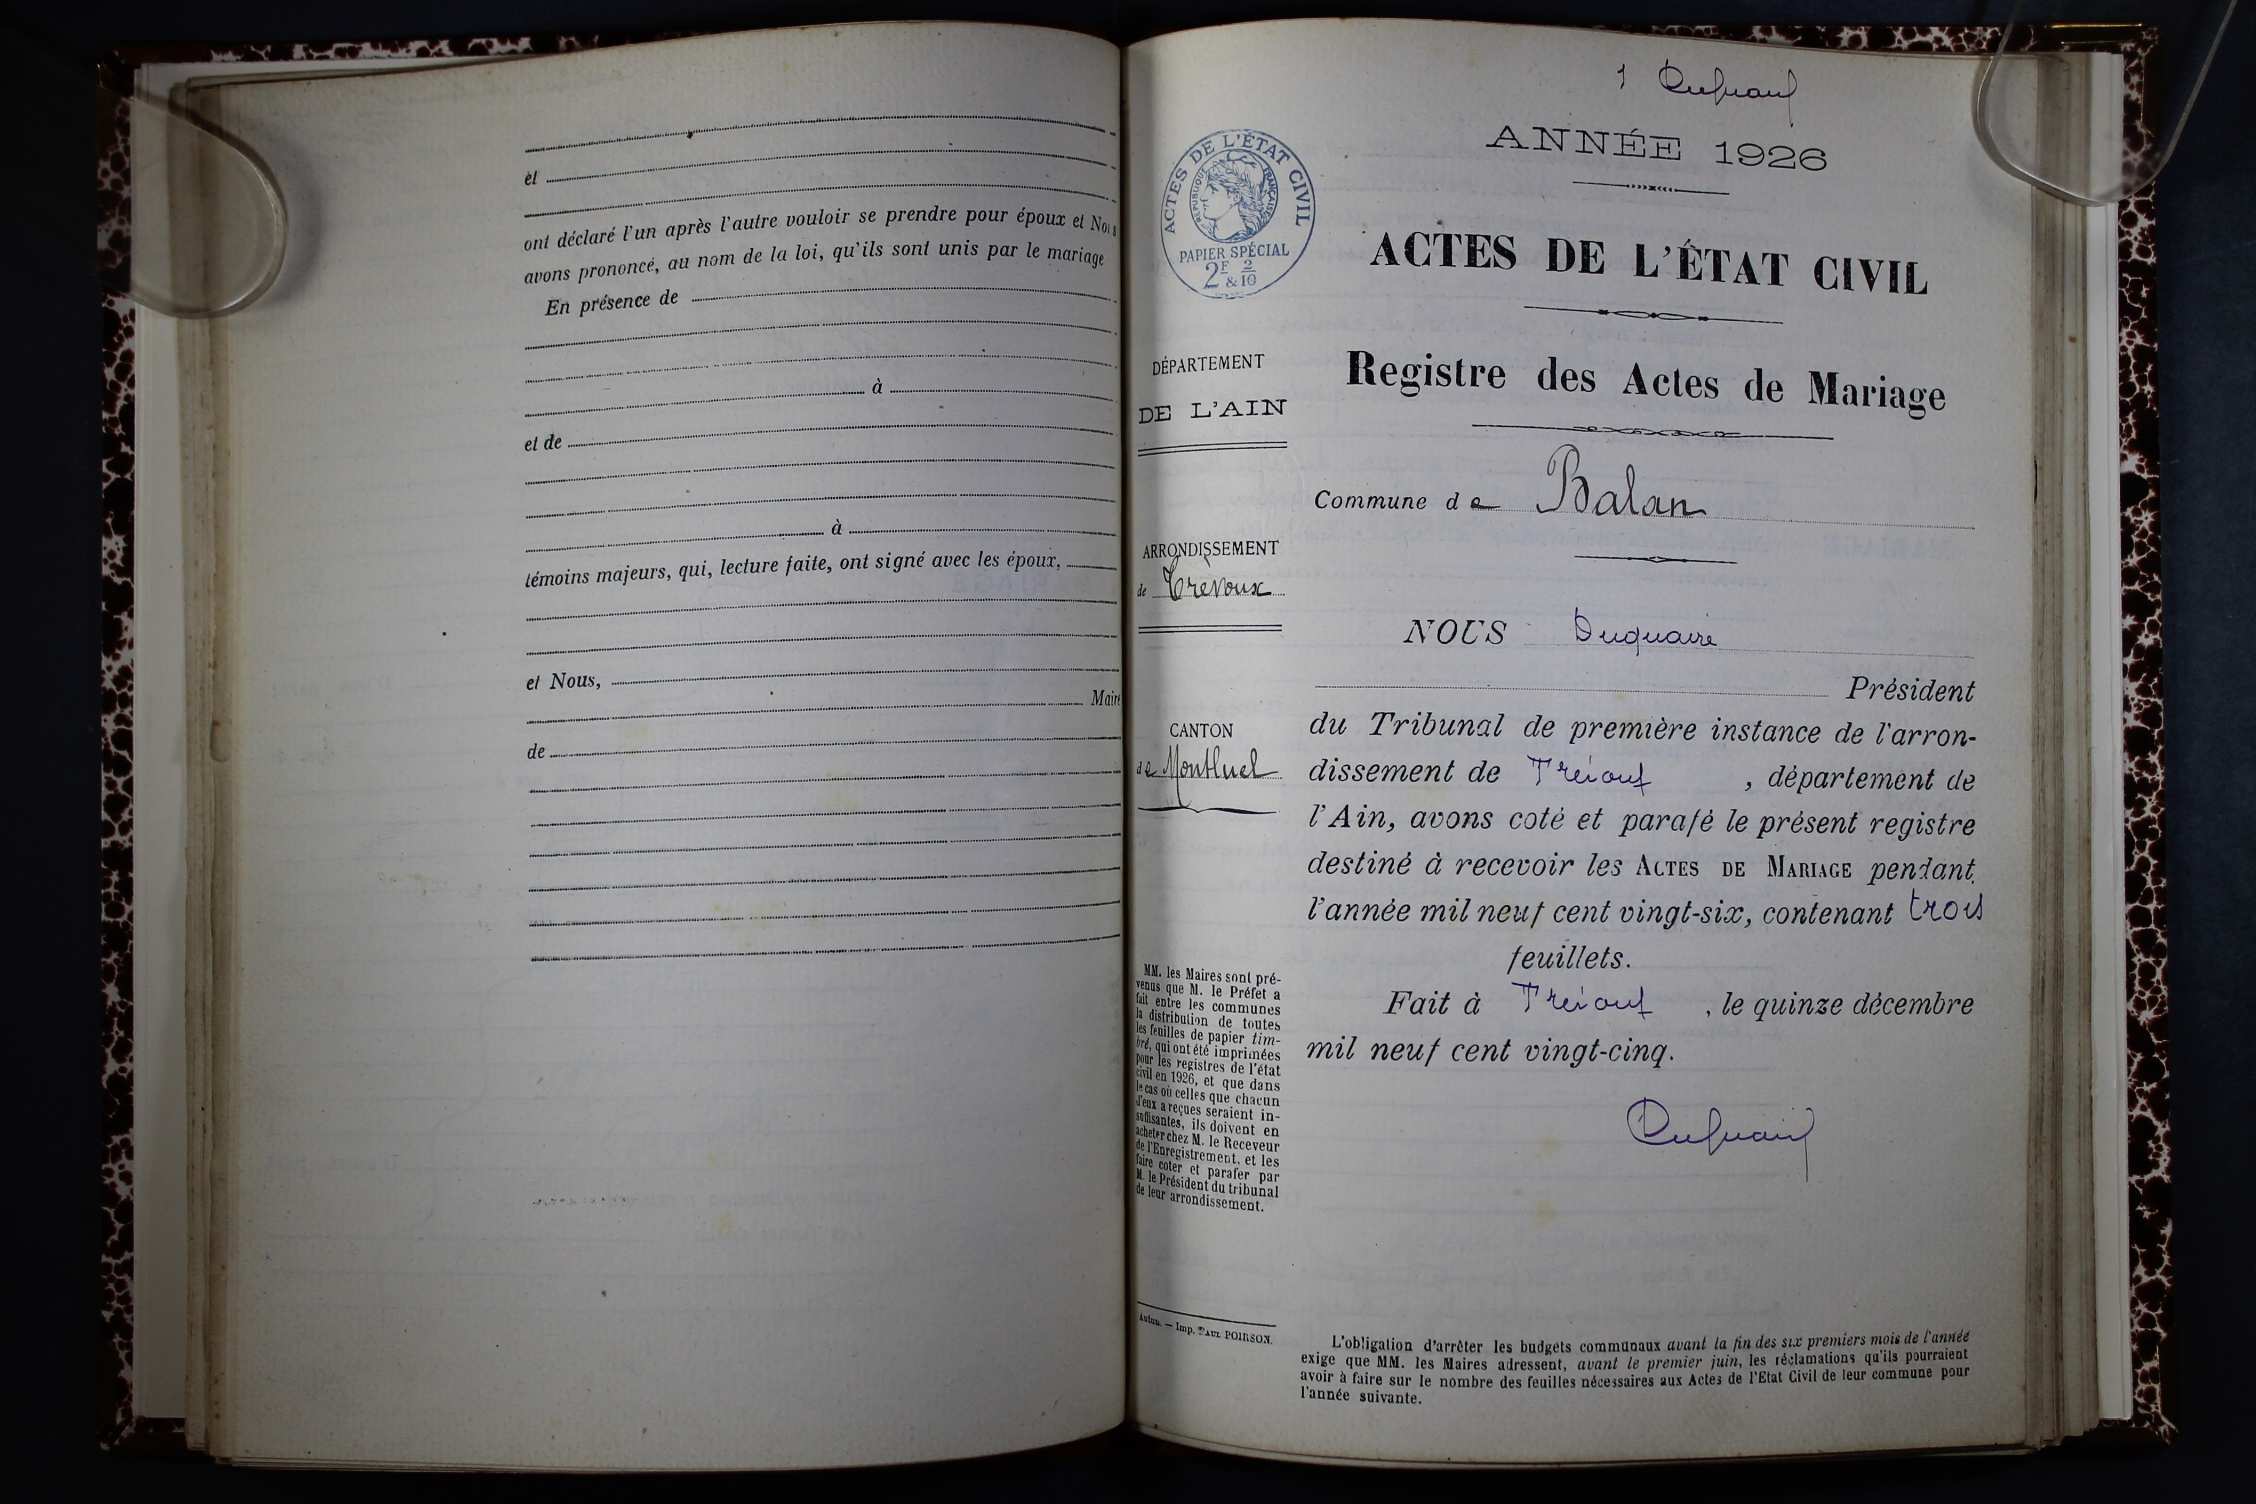 et
ont déclaré l'un après l'autre vouloir se prendre pour époux et Nous
avons prononcé, au nom de la loi, qu'ils sont unis par le mariage
En présence de
à
et de
à
témoins majeurs, qui, lecture faite, ont signé avec les époux,
et Nous,
Maire
de
1 Duquaire
ANNÉE 1926
ACTES DE L'ÉTAT CIVIL
RÉPUBLIQUE FRANÇAISE
PAPIER SPÉCIAL
2F & 2/10
ACTES DE L'ÉTAT CIVIL
Registre des Actes de Mariage
DÉPARTEMENT
DE L'AIN
Commune de Balan
ARRONDISSEMENT
de Trévoux
CANTON
de Montluel
NOUS Duquaire
Président
du Tribunal de première instance de l'arron-
dissement de Trévoux, département de
l'Ain, avons coté et parafé le présent registre
destiné à recevoir les ACTES DE MARIAGE pendant
l'année mil neuf cent vingt-six, contenant trois
feuillets.
Fait à Trévoux, le quinze décembre
mil neuf cent vingt-cinq.
Duquaire
MM. les Maires sont pré-
venus que M. le Préfet a
fait entre les communes
la distribution de toutes
les feuilles de papier tim-
bré, qui ont été imprimées
pour les registres de l'état
civil en 1926, et que dans
le cas où celles que chacun
d'eux a reçues seraient in-
suffisantes, ils doivent en
acheter chez M. le Receveur
de l'Enregistrement, et les
faire coter et parafer par
M. le Président du tribunal
de leur arrondissement.
Autun. — Imp. PAUL POIRSON.
L'obligation d'arrêter les budgets communaux avant la fin des six premiers mois de l'année
exige que MM. les Maires adressent, avant le premier juin, les réclamations qu'ils pourraient
avoir à faire sur le nombre des feuilles nécessaires aux Actes de l'Etat Civil de leur commune pour
l'année suivante.